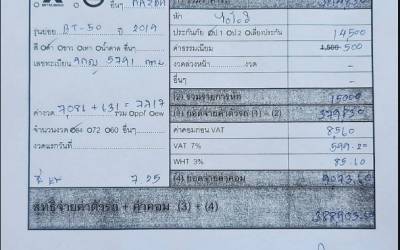 อื่นๆ MAZDA
รุ่นย่อย BT-50 ปี 2019
หัก
ประกันภัย 14500
สี ดำ ขาว เทา น้ำตาล อื่นๆ
ค่าธรรมเนียม 1,500 500
เลขทะเบียน 5791 กทม
งวดล่วงหน้า งวด -
อื่นๆ
(2) รวมรายการหัก 15000
ค่างวด 7,086 + 631 = 7717
(3) ยอดจ่ายค่าตัวรถ (1) - (2) 379830
จำนวนงวด 84 72 60 อื่นๆ
ค่าคอมก่อน VAT 8560
งวดแรกวันที่
VAT 7% 599.20
WHT 3% 85.60
7.25
(4) ยอดจ่ายค่าคอม 9073.60
สุทธิจ่ายค่าตัวรถ + ค่าคอม (3) + (4)
388903.60